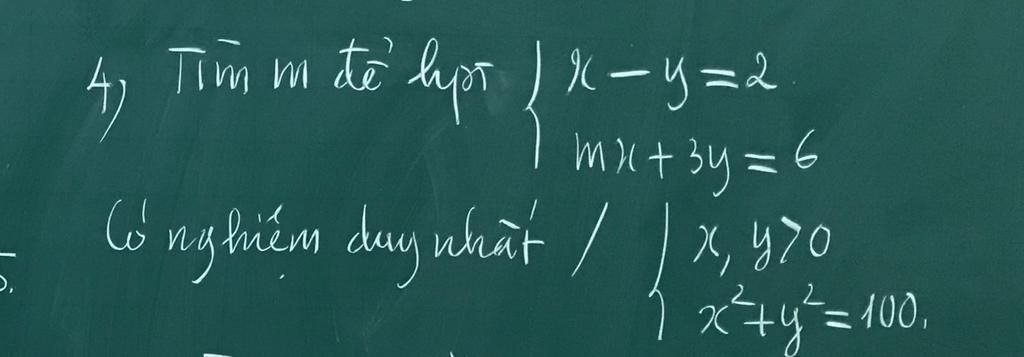 4) Tìm m để hpt { x - y = 2
mx + 3y = 6
Có nghiệm duy nhất / { x, y > 0
x² + y² = 100.
5.